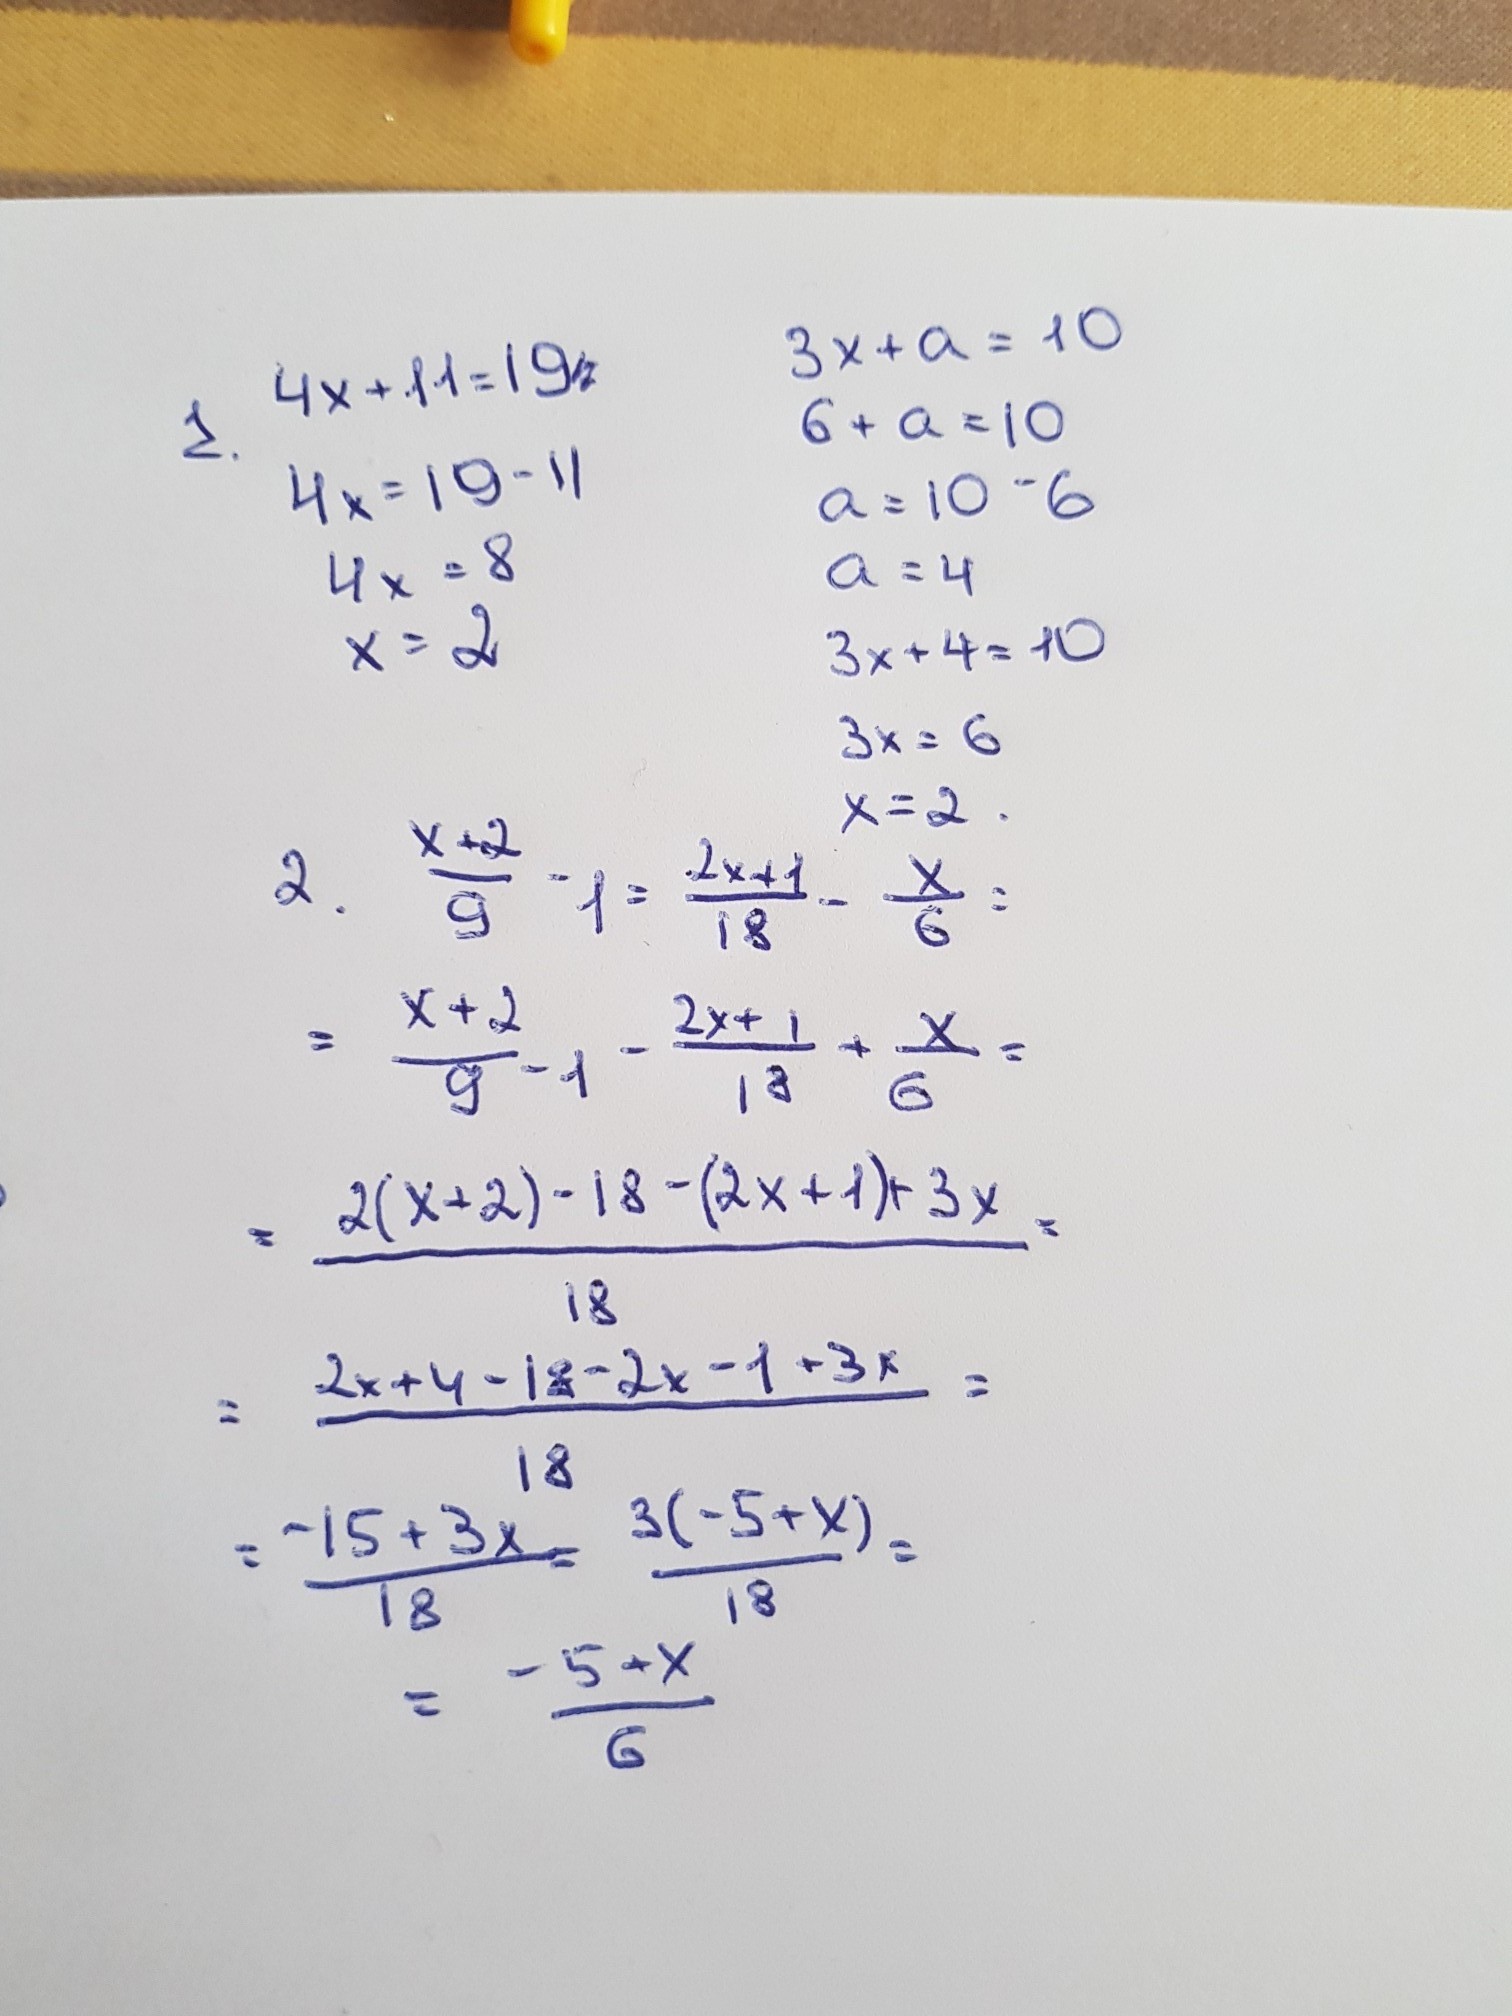 1. 4x+11=19
4x=19-11
4x=8
x=2
3x+a=10
6+a=10
a=10-6
a=4
3x+4=10
3x=6
x=2.
2. (x+2)/9 -1= (2x+1)/18 - x/6 =
= (x+2)/9 -1 - (2x+1)/18 + x/6 =
= (2(x+2)-18-(2x+1)+3x)/18 =
= (2x+4-18-2x-1+3x)/18 =
= (-15+3x)/18 = 3(-5+x)/18 =
= (-5+x)/6